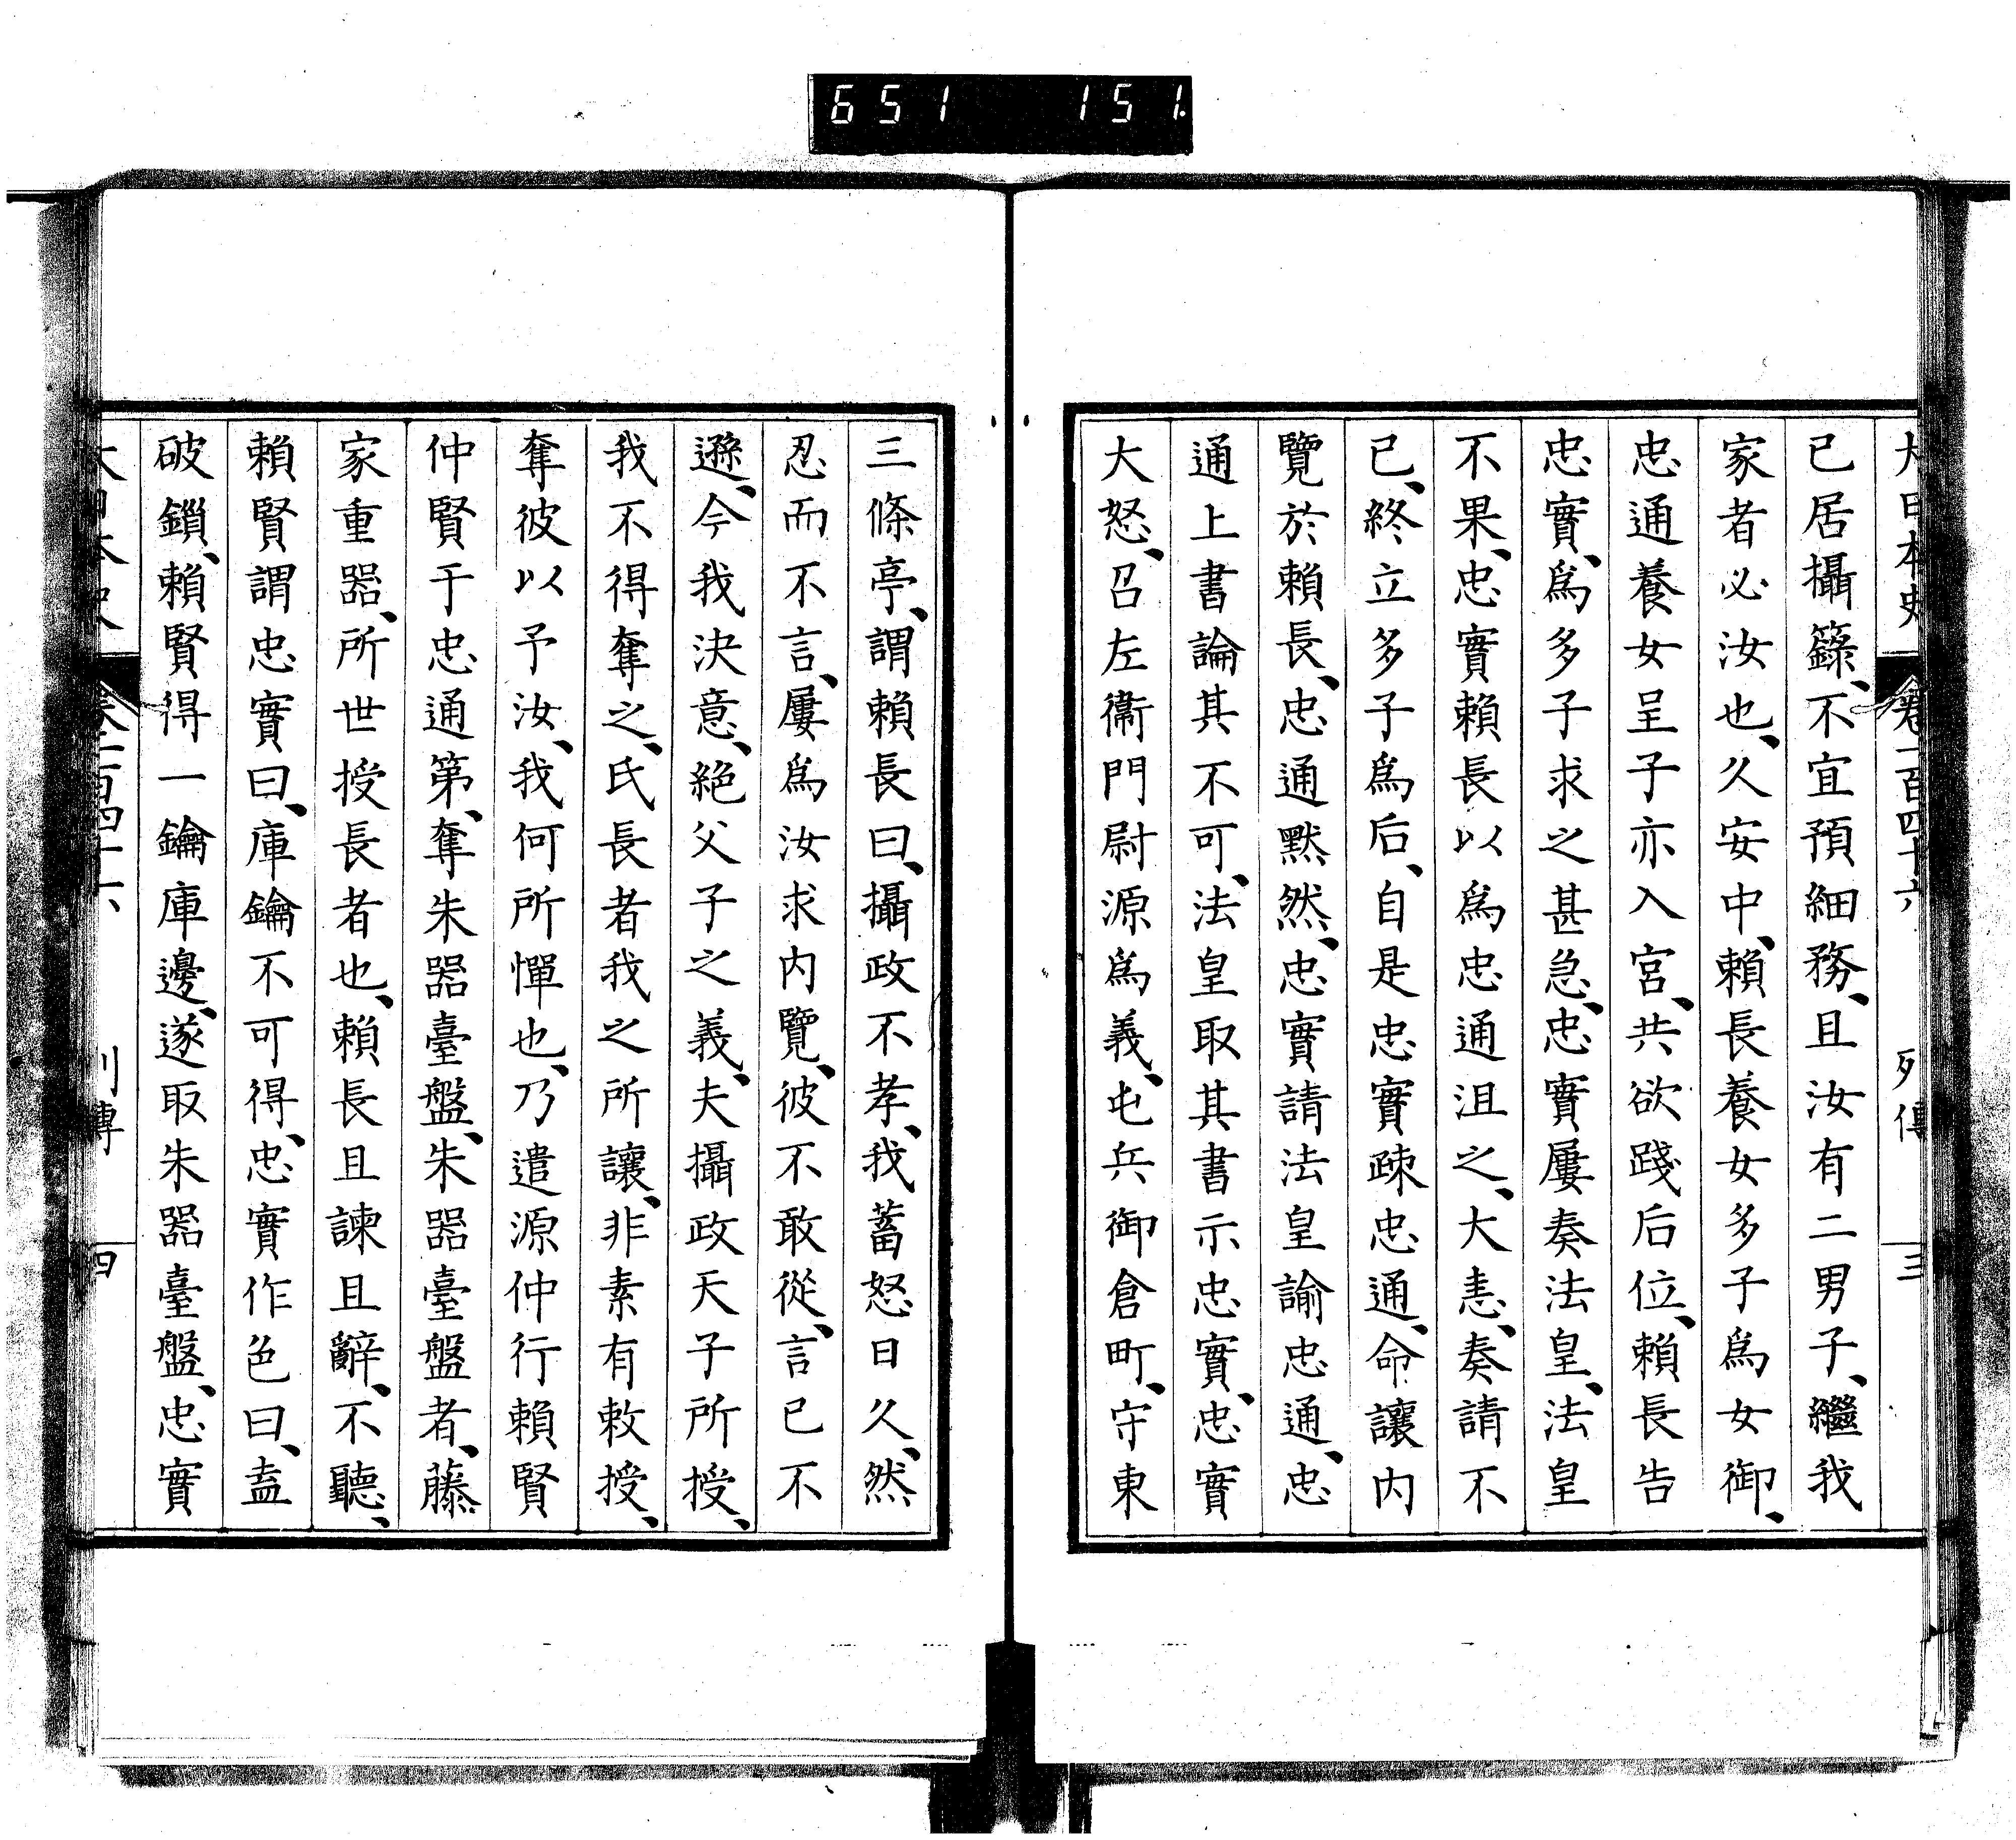 651 151
大日本史 卷一百四十六 列傳 三
已居攝籙、不宜預細務、且汝有二男子、繼我
家者必汝也、久安中、賴長養女多子爲女御、
忠通養女呈子亦入宮、共欲踐后位、賴長告
忠實、爲多子求之甚急、忠實屢奏法皇、法皇
不果、忠實賴長以爲忠通沮之、大恚、奏請不
已、終立多子爲后、自是忠實疎忠通、命讓内
覽於賴長、忠通默然、忠實請法皇諭忠通、忠
通上書論其不可、法皇取其書示忠實、忠實
大怒、召左衞門尉源爲義、屯兵御倉町、守東
三條亭、謂賴長曰、攝政不孝、我蓄怒日久、然
忍而不言、屢爲汝求内覽、彼不敢從、言已不
遜、今我決意、絕父子之義、夫攝政天子所授、
我不得奪之、氏長者我之所讓、非素有敕授、
奪彼以予汝、我何所憚也、乃遣源仲行賴賢
仲賢于忠通第、奪朱器臺盤、朱器臺盤者、藤
家重器、所世授長者也、賴長且諫且辭、不聽、
賴賢謂忠實曰、庫鑰不可得、忠實作色曰、盍
破鎖、賴賢得一鑰庫邊、遂取朱器臺盤、忠實
大日本史 卷一百四十六 列傳 四